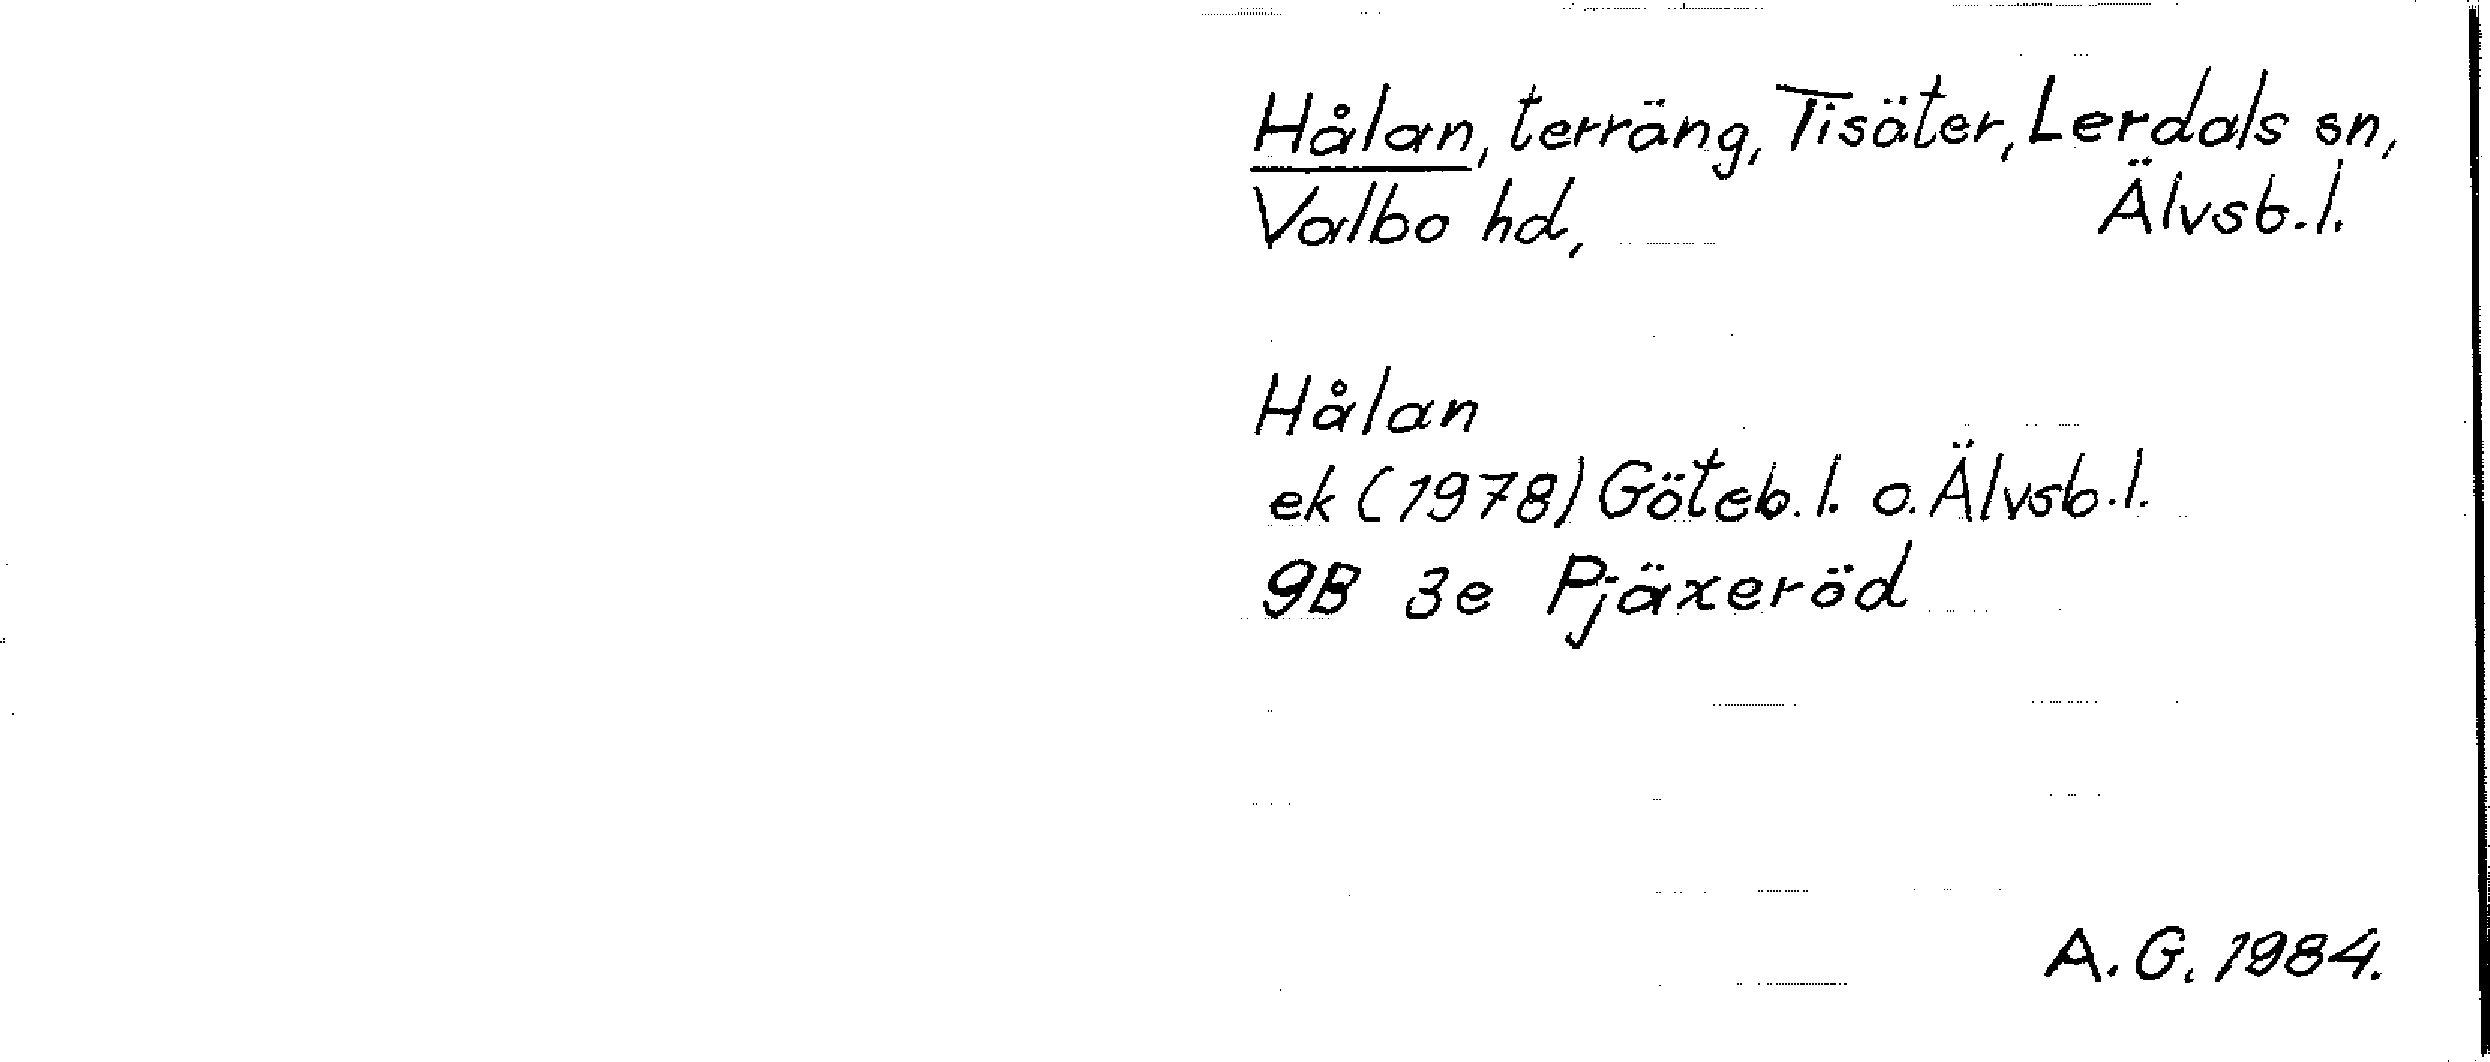 Hålan, terräng, Tisäter, Lerdals sn,
Valbo hd, Älvsb.l.
Hålan
ek (1978) Göteb.l. o. Älvsb.l.
9B 3e Pjäxeröd
A.G. 1984.